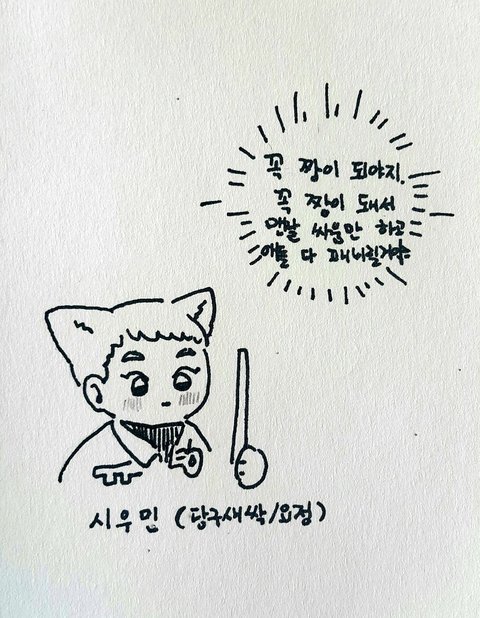 꼭 짱이 되야지.
꼭 짱이 돼서
맨날 싸움만 하고
애들 다 패버릴거야
시우민 (당구새싹/요정)